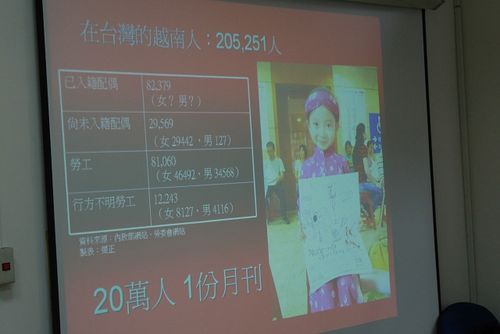 在台灣的越南人：205,251人
已入籍配偶 82,379
（女？男？）
尚未入籍配偶 29,569
（女 29442，男 127）
勞工 81,060
（女 46492，男 34568）
行方不明勞工 12,243
（女 8127，男 4116）
資料來源：內政部網站、勞委會網站
製表：張正
20萬人 1份月刊